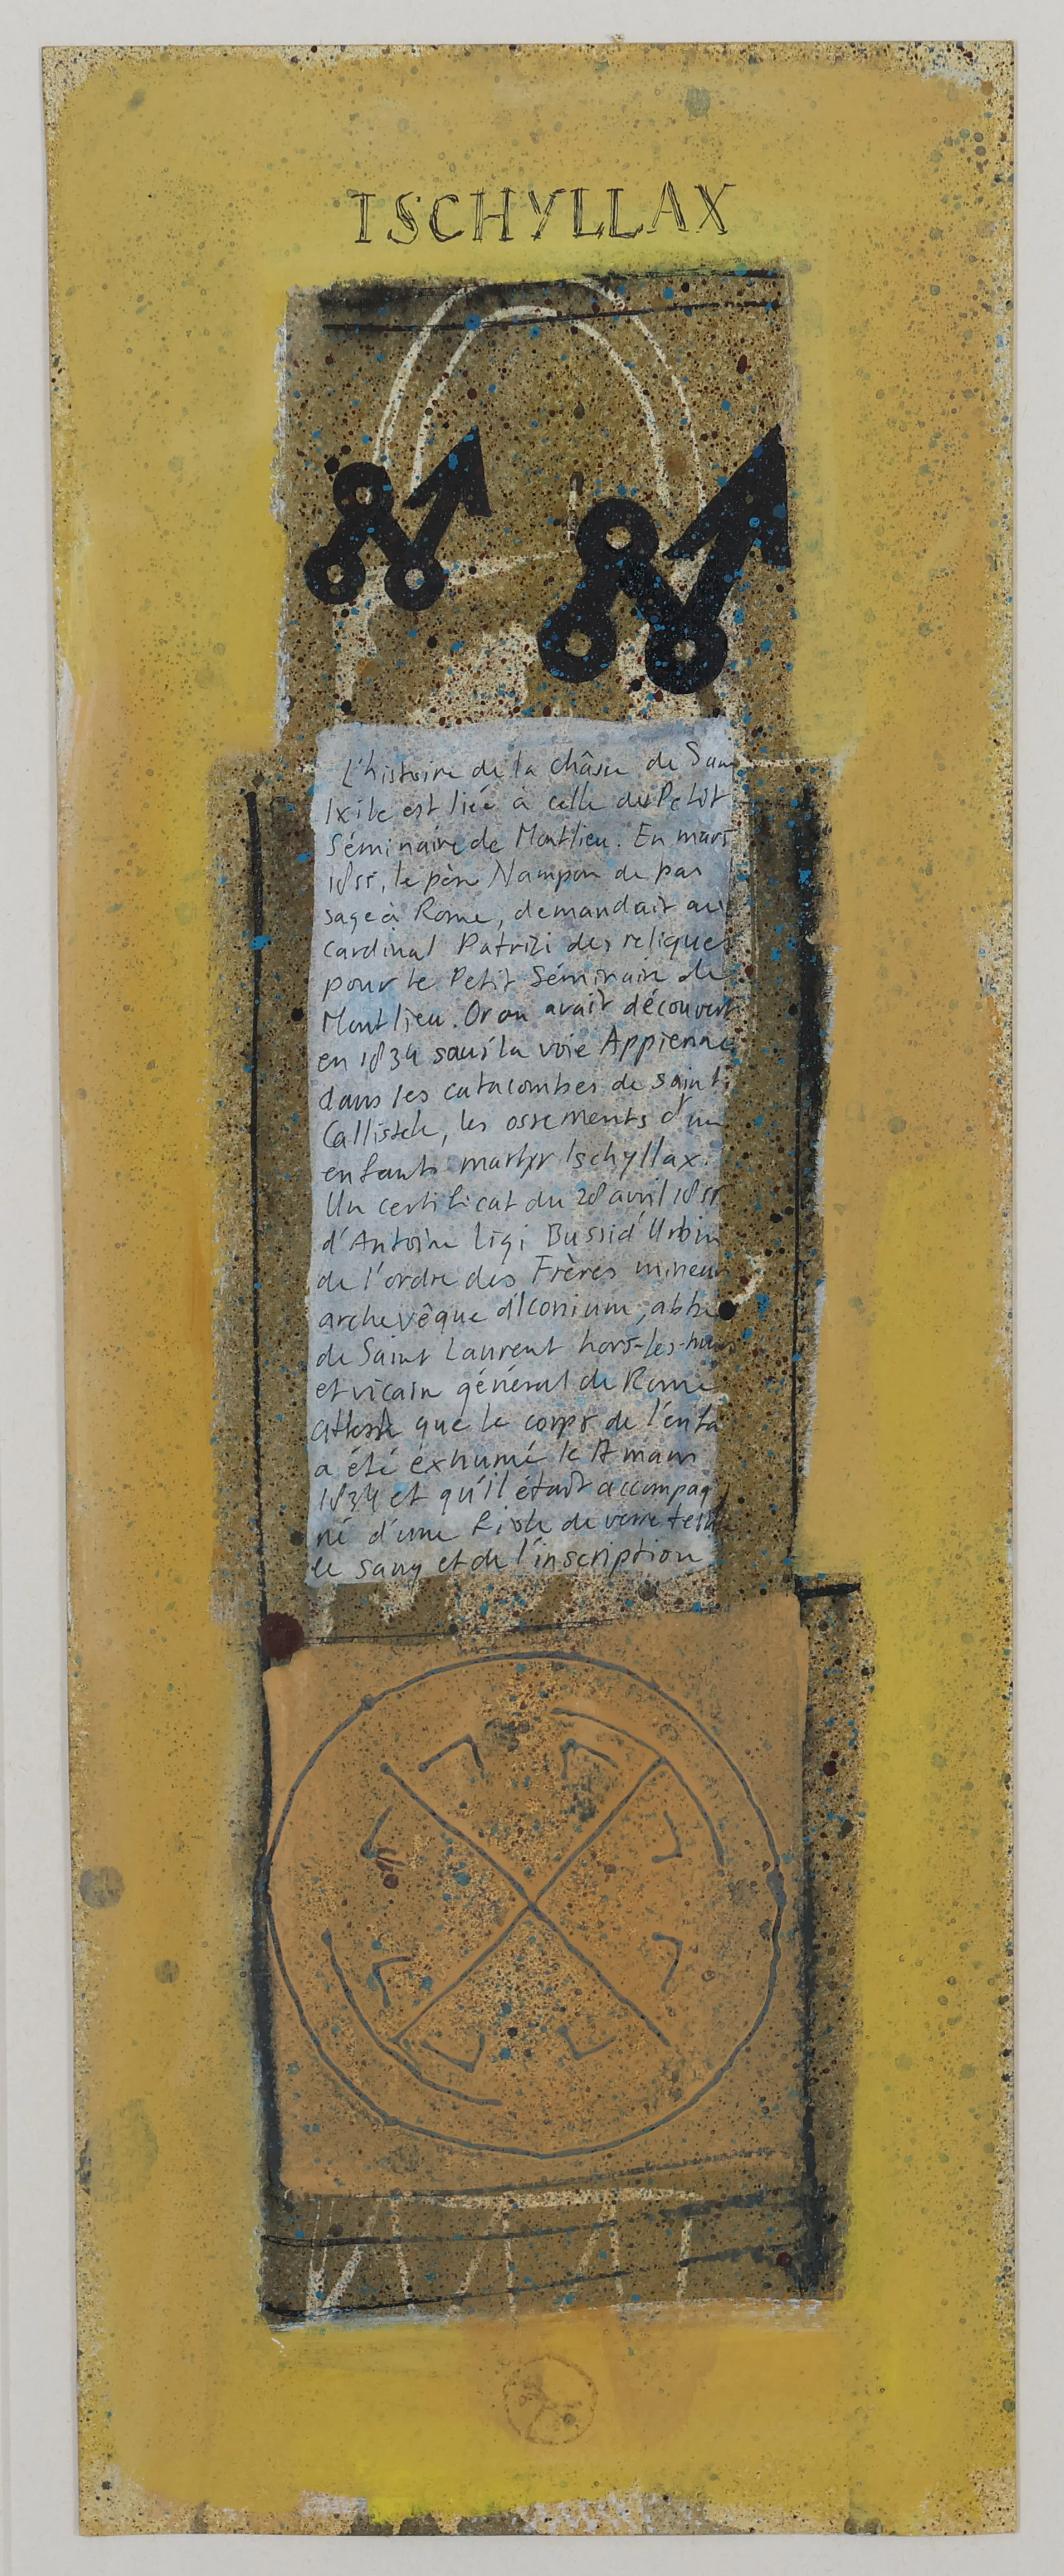 ISCHYLLAX
L'histoire de la châsse de
Ixile est liée à celle du Petit
Séminaire de Montlieu. En mars
1855, le père Nampon de pas
sage à Rome, demandait au
cardinal Patrizi des reliques
pour le Petit Séminaire de
Montlieu. Or on avait découvert
en 1834 sous la voie Appienne
dans les catacombes de saint
Callistch, les ossements d'un
enfant martyr Ischyllax.
Un certificat du 28 avril 1855
d'Antoine Ligi Bussi d'Urbin
de l'ordre des Frères mineurs
archevêque d'Iconium, abbé
de Saint Laurent hors-les-murs
et vicaire général de Rome
atteste que le corps de l'enfa
a été exhumé le 17 mars
1834 et qu'il était accompag
né d'une fiole de verre teinte
le sang et de l'inscription